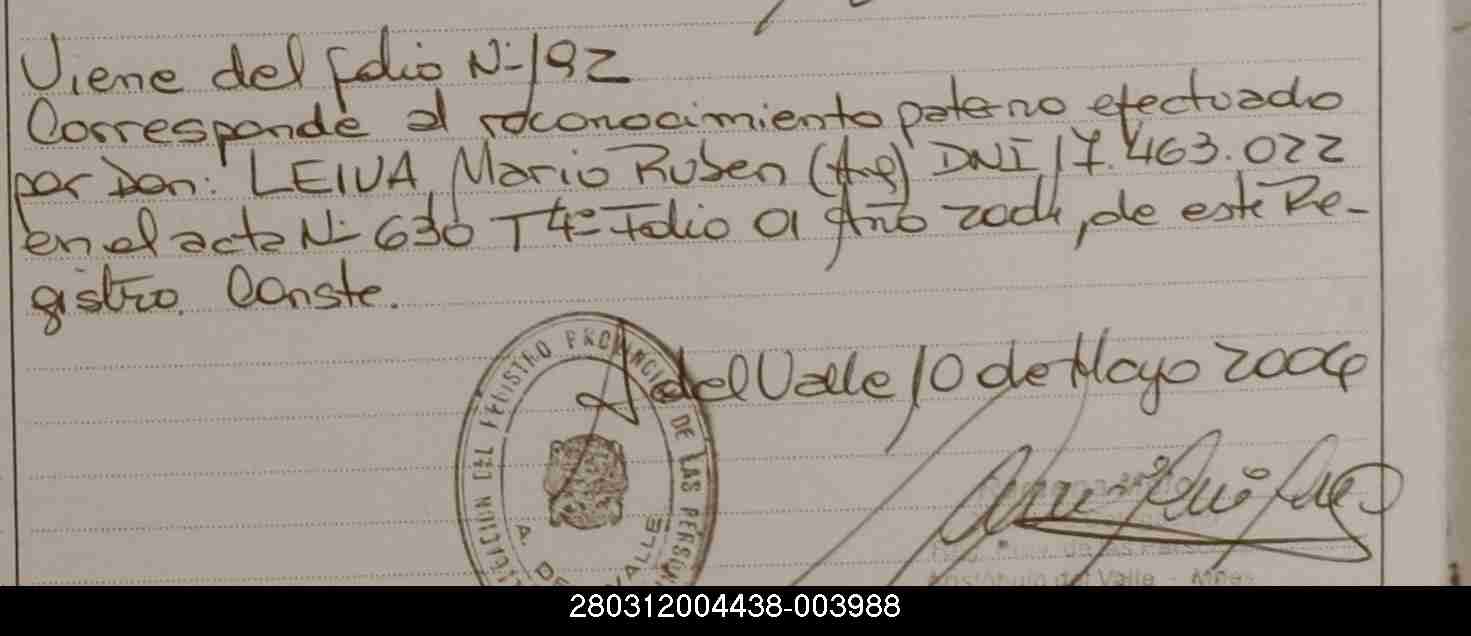 Viene del folio Nº 192
Corresponde al reconocimiento paterno efectuado
por Don: LEIVA, Mario Ruben (Arg) DNI 17.463.022
en el acta Nº 630 T4º Folio 01 Año 2004, de este Re-
gistro. Conste.
A. del Valle 10 de Mayo 2004
DEL REGISTRO PROVINCIAL DE LAS PERSONAS
A. DEL VALLE
del Valle - Mnes
280312004438-003988